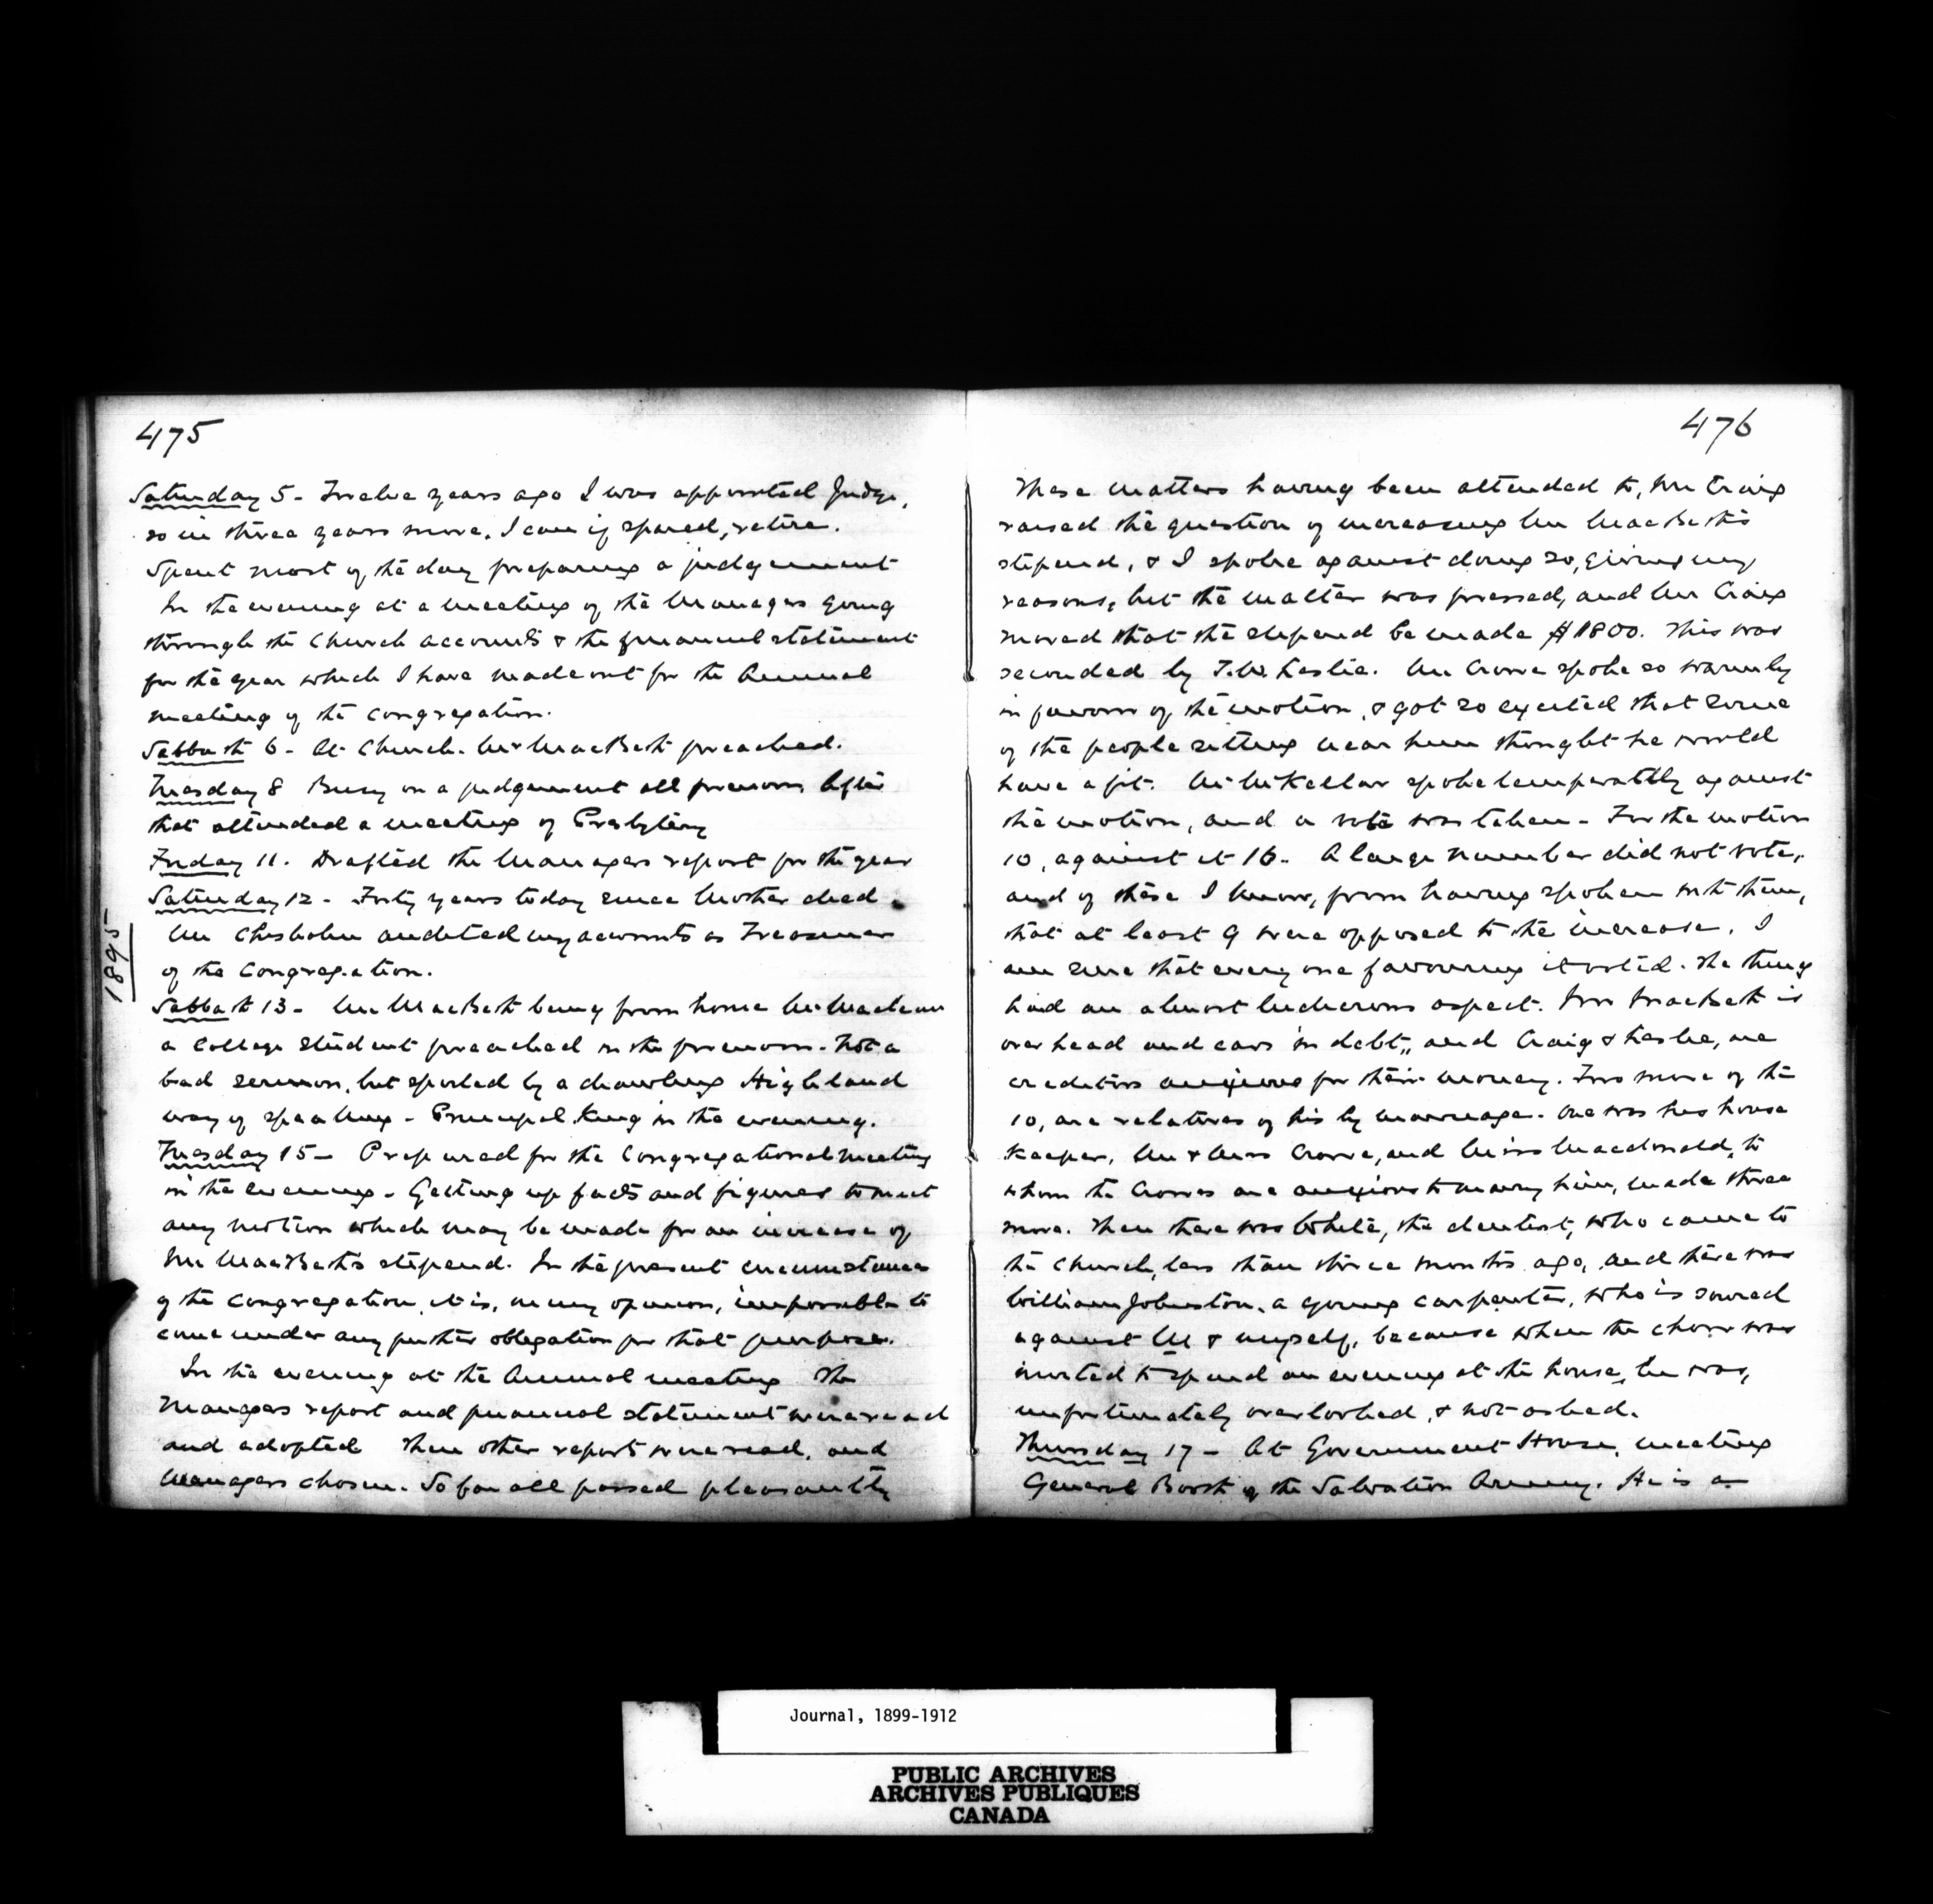 475
Saturday 5 - Twelve years ago I was appointed Judge,
so in three years more, I can if spared, retire.
Spent most of the day preparing a judgement
In the evening at a meeting of the Managers going
through the Church accounts & the financial statement
for the year which I have made out for the Annual
meeting of the congregation.
Sabbath 6 - At Church. Mr MacBeth preached.
Tuesday 8 Busy on a judgement all forenoon After
that attended a meeting of Presbytery
Friday 11. Drafted the Managers report for the year
Saturday 12 - Forty years today since Mother died.
Mr Chisholm audited my accounts as Treasurer
of the Congregation.
1895
Sabbath 13 - Mr MacBeth being from home Mr Maclean
a College student preached in the forenoon. Not a
bad sermon, but spoiled by a drawling Highland
way of speaking - Principal King in the evening.
Tuesday 15 - Prepared for the Congregational meeting
in the evening - Getting up facts and figures to meet
any motion which may be made for an increase of
Mr MacBeth's stipend. In the present circumstances
of the congregation, it is, in my opinion, impossible to
come under any further obligation for that purpose.
In the evening at the Annual meeting The
Managers report and financial statement were read
and adopted Then other report were read, and
Managers chosen. So far all passed pleasantly
476
These matters having been attended to, Mr Craig
raised the question of increasing Mr MacBeth's
stipend, & I spoke against doing so, giving my
reasons, but the matter was pressed, and Mr Craig
moved that the stipend be made $1800. This was
seconded by T.W. Leslie. Mr Crowe spoke so warmly
in favour of the motion, & got so excited that some
of the people sitting near him thought he would
have a fit. Mr McKellar spoke temperately against
the motion, and a vote was taken - For the motion
10, against it 16 - A large number did not vote,
and of these I know, from having spoken with them,
that at least 9 were opposed to the increase. I
am sure that every one favouring it voted. The thing
had an almost ludicrous aspect. Mr MacBeth is
over head and ears in debt, and Craig & Leslie, are
creditors anxious for their money. Two more of the
10, are relatives of his by marriage. One was his house
keeper, Mr & Mrs Crowe, and Miss Macdonald, to
whom the Crowes are anxious to marry him, made three
more. Then there was White, the dentist, who came to
the Church, less than three months ago, and there was
William Johnston, a young carpenter, who is soured
against M & myself, because when the choir was
invited to spend an evening at the house, he was,
unfortunately overlooked, & not asked.
Thursday 17 - At Government House, meeting
General Booth of the Salvation Army. He is a
Journal, 1899-1912
PUBLIC ARCHIVES
ARCHIVES PUBLIQUES
CANADA